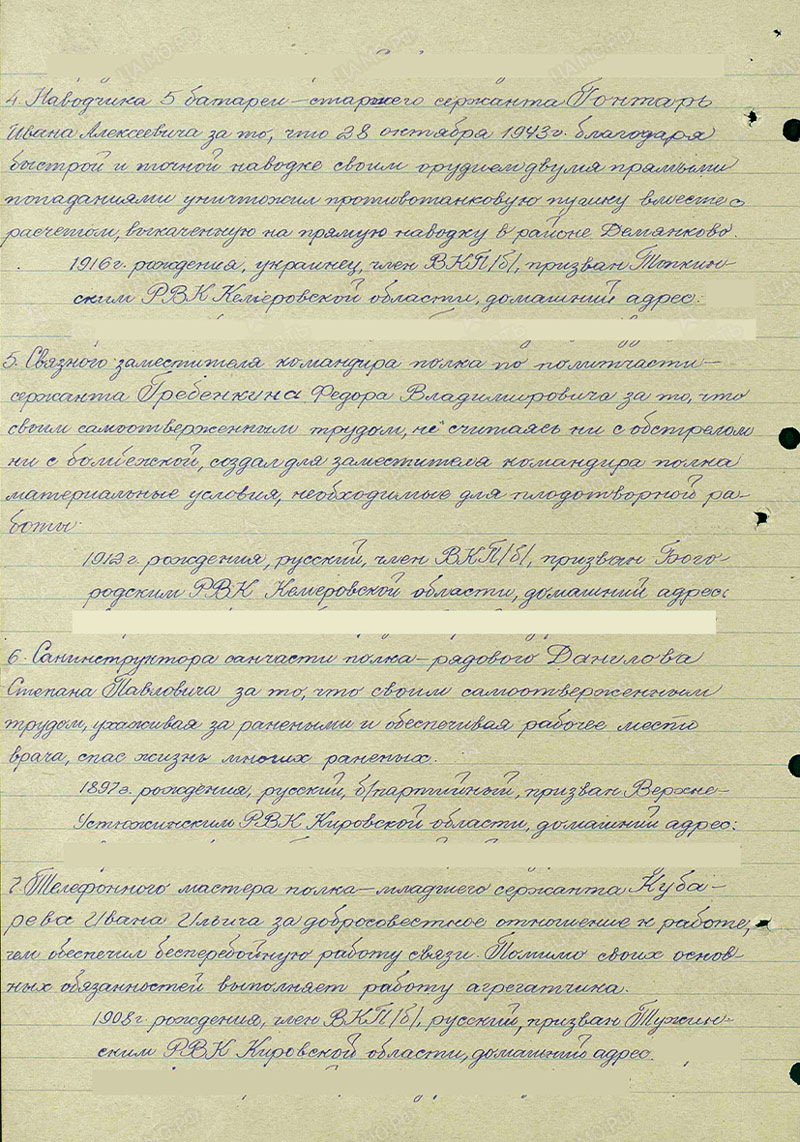 4. Наводчика 5 батареи – старшего сержанта Гонтарь
Ивана Алексеевича за то, что 28 октября 1943 г. благодаря
быстрой и точной наводке своим орудием двумя прямыми
попаданиями уничтожил противотанковую пушку вместе с
расчетом, выкаченную на прямую наводку в районе Демянково.
1916 г. рождения, украинец, член ВКП/б/, призван Топкин-
ским РВК Кемеровской области, домашний адрес:
5. Связного заместителя командира полка по политчасти –
сержанта Гребенкина Федора Владимировича за то, что
своим самоотверженным трудом, не считаясь ни с обстрелом
ни с бомбежкой, создал для заместителя командира полка
материальные условия, необходимые для плодотворной ра-
боты.
1912 г. рождения, русский, член ВКП/б/, призван Бого-
родским РВК Кемеровской области, домашний адрес:
6. Санинструктора санчасти полка – рядового Данилова
Степана Павловича за то, что своим самоотверженным
трудом, ухаживая за ранеными и обеспечивая рабочее место
врача, спас жизнь многих раненых.
1897 г. рождения, русский, б/партийный, призван Верхне-
Устюжинским РВК Кировской области, домашний адрес:
7. Телефонного мастера полка – младшего сержанта Куба-
рева Ивана Ильича за добросовестное отношение к работе,
чем обеспечил бесперебойную работу связи. Помимо своих основ-
ных обязанностей выполняет работу агрегатчика.
1908 г. рождения, член ВКП/б/, русский, призван Тужин-
ским РВК Кировской области, домашний адрес.